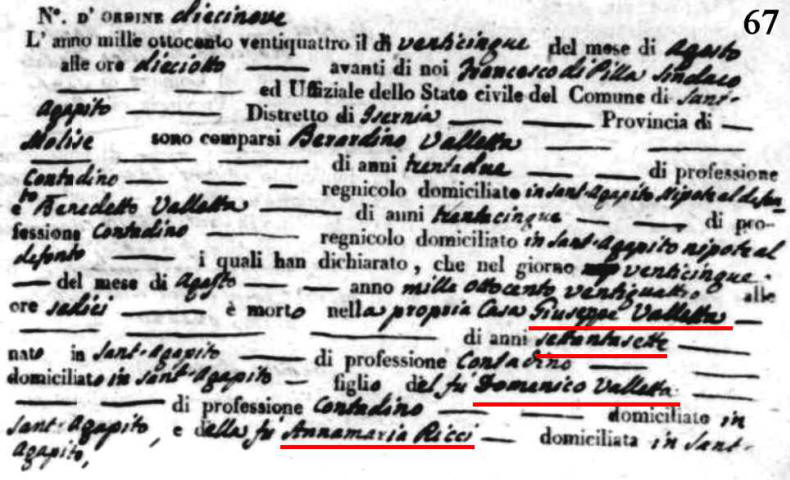 67
N°. D' ORDINE diecinove
L' anno mille ottocento ventiquattro il dì venticinque del mese di Agosto
alle ore dieciotto avanti di noi Francesco di Pilla Sindaco
ed Uffiziale dello Stato civile del Comune di Sant-
Agapito Distretto di Isernia Provincia di
Molise sono comparsi Berardino Valletta
di anni trentadue di professione
Contadino regnicolo domiciliato in Sant-Agapito Nipote al defon
to e Benedetto Valletta di anni trentacinque di pro-
fessione Contadino regnicolo domiciliato in Sant-Agapito nipote al
defonto i quali han dichiarato, che nel giorno venticinque
del mese di Agosto anno mille ottocento ventiquattro alle
ore sedici è morto nella propria Casa Giuseppe Valletta
di anni settantasette
nato in Sant-Agapito di professione Contadino
domiciliato in Sant-Agapito figlio del fù Domenico Valletta
di professione Contadino domiciliato in
Sant-Agapito, e della fù Annamaria Ricci domiciliata in Sant-
Agapito,